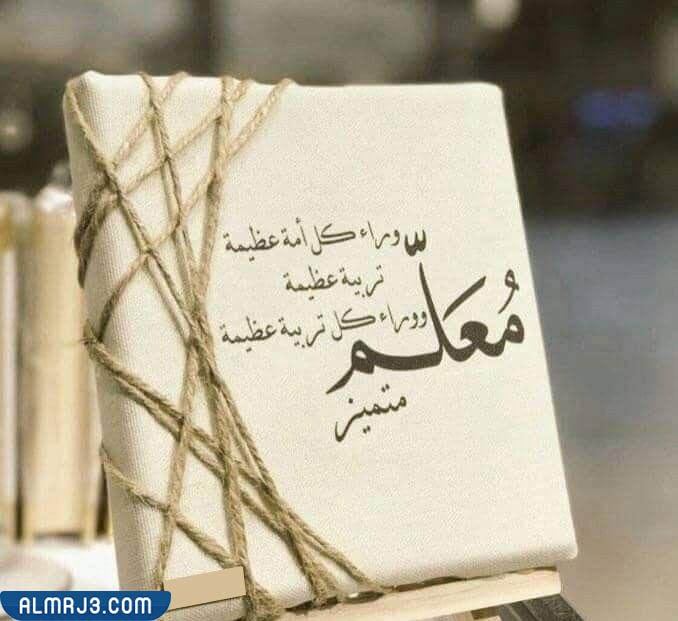 وراء كل أمة عظيمة
تربية عظيمة
ووراء كل تربية عظيمة
مُعَلّم
متميز
ALMRJ3.COM